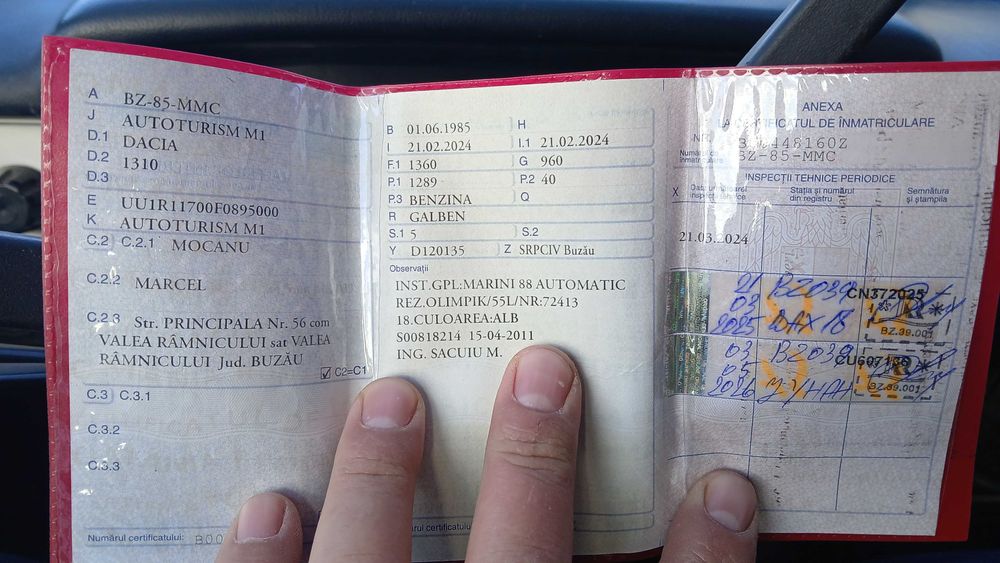 A BZ-85-MMC
J AUTOTURISM M1
D.1 DACIA
D.2 1310
D.3
E UU1R11700F0895000
K AUTOTURISM M1
C.2 C.2.1 MOCANU
C.2.2 MARCEL
C.2.3 Str. PRINCIPALA Nr. 56 com
VALEA RÂMNICULUI sat VALEA
RÂMNICULUI Jud. BUZĂU
C2=C1
C.3 C.3.1
C.3.2
C.3.3
Numărul certificatului:
B 01.06.1985 H
I 21.02.2024 I.1 21.02.2024
F.1 1360 G 960
P.1 1289 P.2 40
P.3 BENZINA Q
R GALBEN
S.1 5 S.2
Y D120135 Z SRPCIV Buzău
Observații
INST.GPL:MARINI 88 AUTOMATIC
REZ.OLIMPIK/55L/NR:72413
18.CULOAREA:ALB
S00818214 15-04-2011
ING. SACUIU M.
certificatului
ANEXA
LA CERTIFICATUL DE ÎNMATRICULARE
NR.
Numărul de
înmatriculare BZ-85-MMC
INSPECȚII TEHNICE PERIODICE
X Data următoarei
inspecții tehnice
Stația și numărul
din registru
Semnătura
și ștampila
21.03.2024
21 BZ039 CN372025
03
2025 BZ.39.001
03 BZ039
05
2026 BZ.39.001